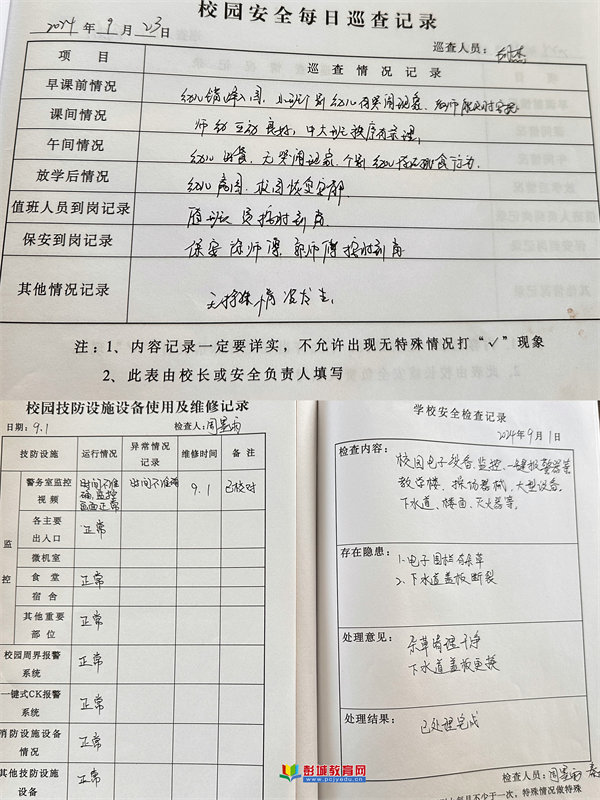 校园安全每日巡查记录
2024年9月23日
巡查人员：
项目 巡查情况记录
早课前情况 幼儿情绪入园，小班个别幼儿有哭闹现象，老师能及时安抚
课间情况 师幼互动良好，中大班秩序有条理。
午间情况 幼儿进餐，无哭闹现象，个别幼儿存在挑食行为。
放学后情况 幼儿离园，校园恢复安静
值班人员到岗记录 值班人员按时到岗
保安到岗记录 保安 徐师傅、郭师傅按时到岗
其他情况记录 无特殊情况发生。
注：1、内容记录一定要详实，不允许出现无特殊情况打“√”现象
2、此表由校长或安全负责人填写
校园技防设施设备使用及维修记录
日期：9.1 检查人：周
技防设施 运行情况 异常情况记录 维修时间 备注
监控
警务室监控视频 时间不准确，监控画面正常 时间不准确 9.1 已校对
各主要出入口 正常
微机室
食堂 正常
宿舍
其他重要部位 正常
校园周界报警系统 正常
一键式CK报警系统 正常
消防设施设备情况 正常
其他技防设施设备 正常
学校安全检查记录
2024年9月1日
检查内容：
校园电子设备、监控、一键报警器等
教学楼、操场器械、大型设备、
下水道、楼面、灭火器等。
存在隐患：
1.电子围栏有杂草
2.下水道盖板断裂
处理意见：
杂草清理干净
下水道盖板更换
处理结果：
已处理完成
检查人员：周
每月不少于一次，特殊情况做特殊
彭城教育网
www.pcjyedu.cn